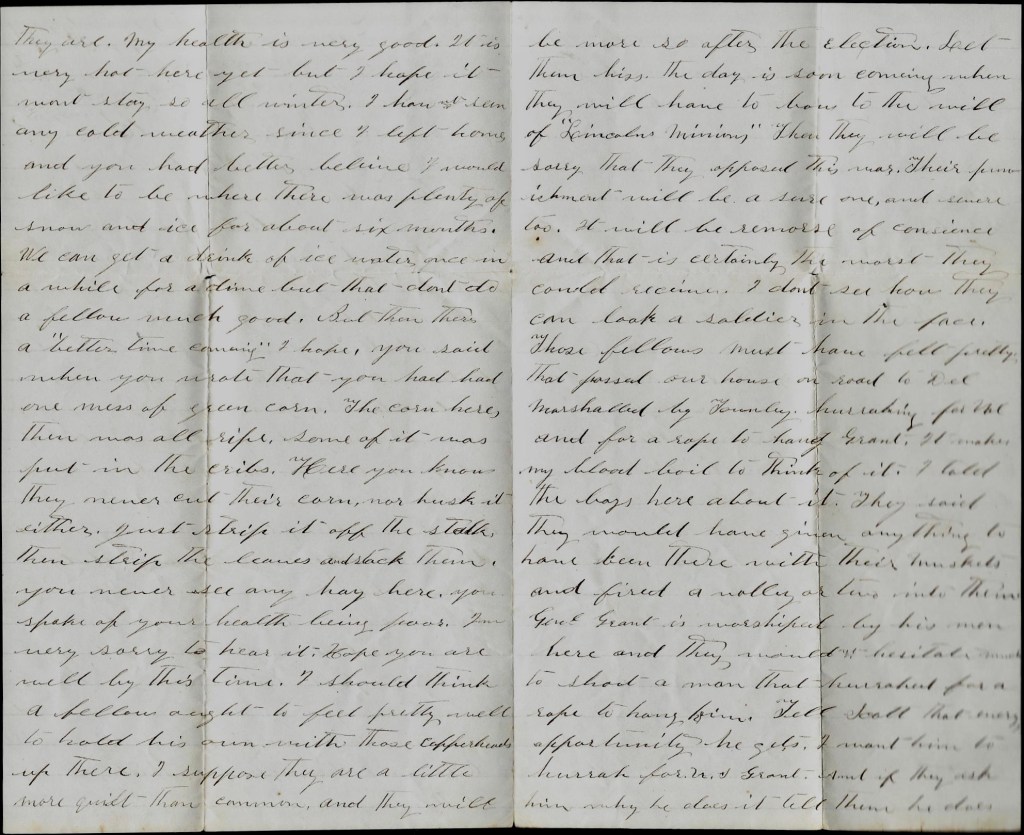 they are. My health is very good. It is
very hot here yet but I hope it
wont stay so all winter. I have not seen
any cold weather since I left home,
and you had better believe I would
like to be where there was plenty of
snow and ice for about six months.
We can get a drink of ice water once in
a while for a dime but that dont do
a fellow much good. But then there
a "better time coming" I hope. You said
when you wrote that you had had
one mess of green corn. The corn here,
then was all ripe. Some of it was
put in the cribs. Here you know
they never cut their corn, nor husk it
either. Just strip it off the stalk,
then strip the leaves and stack them.
You never see any hay here. You
spoke of your health being poor. I'm
very sorry to hear it. Hope you are
well by this time. I should think
a fellow ought to feel pretty well
to hold his own with those copperheads
up there. I suppose they are a little
more quilt than common, and they will
be more so after the election. Let
them hiss. The day is soon coming when
they will have to bow to the will
of "Lincolns Minions" Then they will be
sorry that they opposed this war. Their pun
ishment will be a sure one, and severe
too. It will be remorse of consience
and that is certainly the worst they
could receive. I dont see how they
can look a soldier in the face.
Those fellows must have felt pretty.
that passed our house on road to Del
Marshalled by Townley. hurrahing for Val
and for a rope to hang Grant. It makes
my blood boil to think of it. I told
the boys here about it. They said
they would have given any thing to
have been there with their muskets
and fired a volley or two into them
Genl Grant is worshiped by his men
here and they would n't hesitate much
to shoot a man that hurrahed for a
rope to hang him. Tell Scott that every
opportunity he gets. I want him to
hurrah for U.S Grant. And if they ask
him why he does it tell them he does